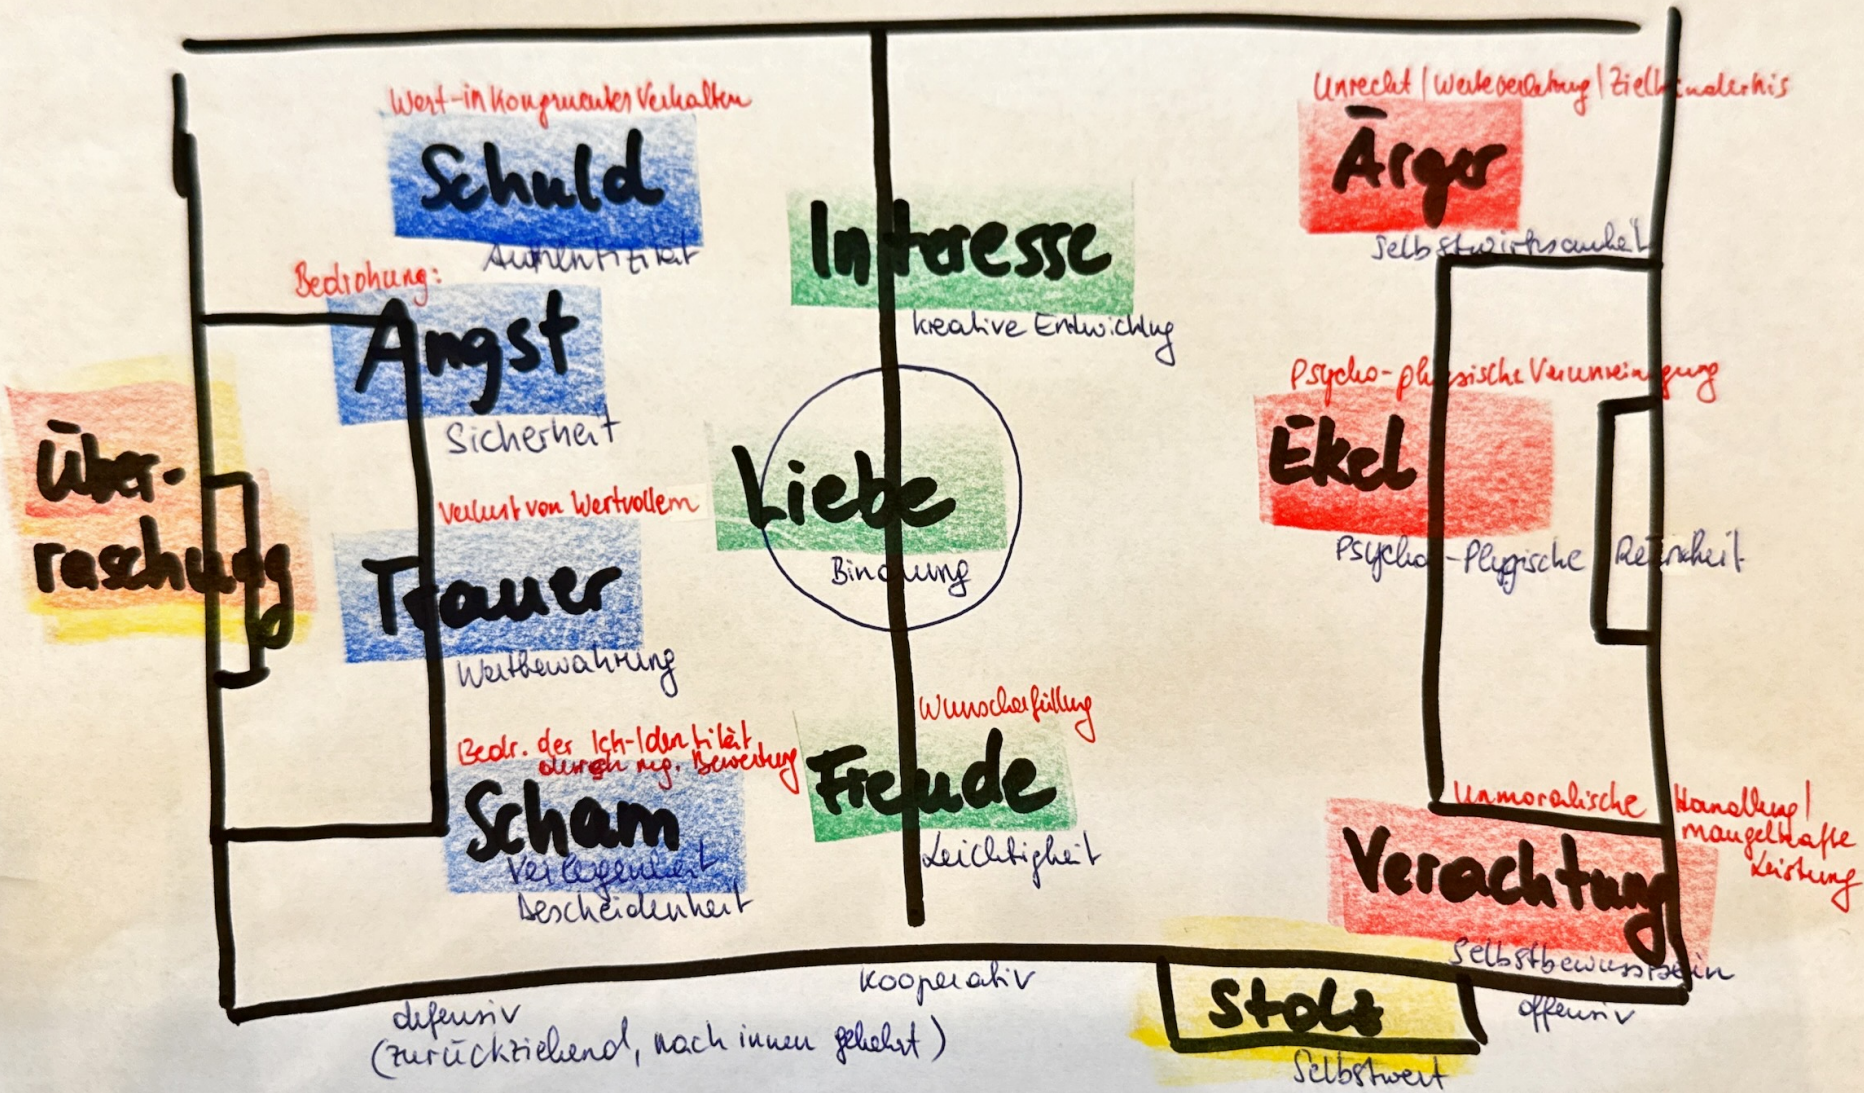 Wert-inkongruentes Verhalten
Schuld
Authentizität
Bedrohung:
Angst
Sicherheit
Über-
raschung
Verlust von Wertvollem
Trauer
Wertbewahrung
Bedr. der Ich-Identität
durch neg. Bewertung
Scham
Verlegenheit
Bescheidenheit
Interesse
kreative Entwicklung
Liebe
Bindung
Wunscherfüllung
Freude
Leichtigkeit
Unrecht / Werteverletzung / Zielhindernis
Ärger
Selbstwirksamkeit
Psycho-physische Verunreinigung
Ekel
Psycho-Physische Reinheit
Unmoralische Handlung /
mangelhafte
Leistung
Verachtung
Selbstbewusstsein
defensiv
(zurückziehend, nach innen gekehrt)
kooperativ
Stolz
Selbstwert
offensiv